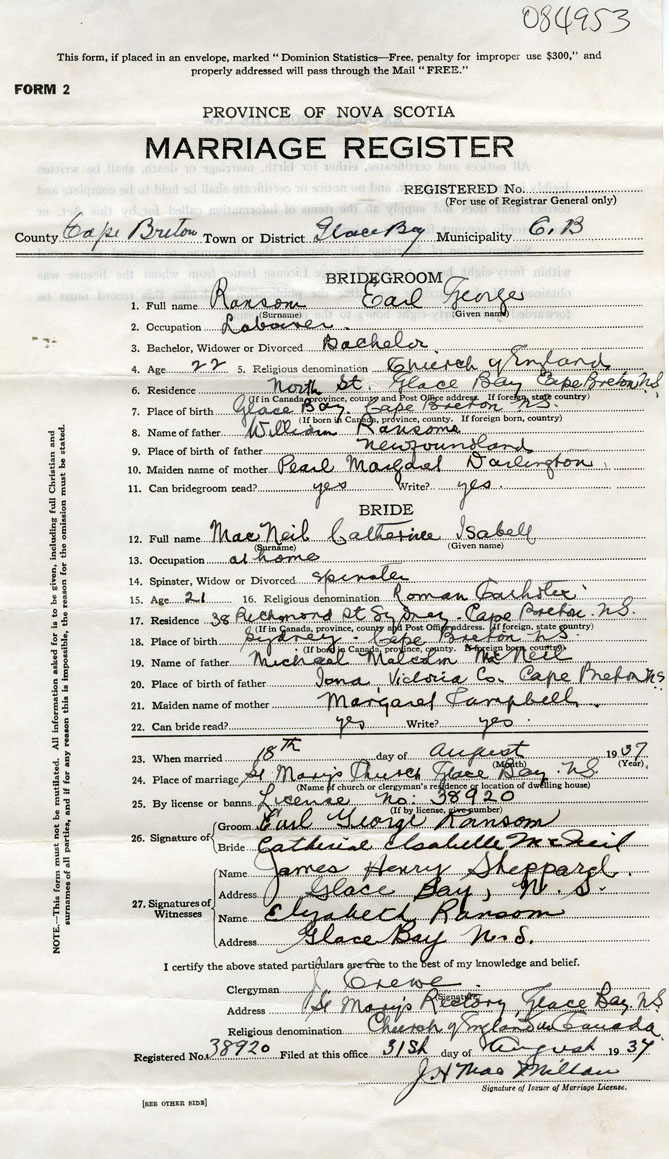 084953
This form, if placed in an envelope, marked "Dominion Statistics—Free, penalty for improper use $300," and
properly addressed will pass through the Mail "FREE."
FORM 2
PROVINCE OF NOVA SCOTIA
MARRIAGE REGISTER
REGISTERED No.
(For use of Registrar General only)
County Cape Breton Town or District Glace Bay Municipality C. B
BRIDEGROOM
1. Full name Ransom Earl George
(Surname) (Given name)
2. Occupation Labourer.
3. Bachelor, Widower or Divorced Bachelor
4. Age 22 5. Religious denomination Church of England
6. Residence North St. Glace Bay Cape Breton N.S
(If in Canada, province, county and Post Office address. If foreign, state country)
7. Place of birth Glace Bay. Cape Breton N.S.
(If born in Canada, province, county. If foreign born, country)
8. Name of father William Ransome
9. Place of birth of father Newfoundland
10. Maiden name of mother Pearl Margaret Darlington
11. Can bridegroom read? yes Write? yes.
BRIDE
12. Full name MacNeil Catherine Isabell
(Surname) (Given name)
13. Occupation at home
14. Spinster, Widow or Divorced spinster
15. Age 21 16. Religious denomination Roman Catholic
17. Residence 38 Richmond St Sydney. Cape Breton. N.S.
(If in Canada, province, county and Post Office address. If foreign, state country)
18. Place of birth Sydney - Cape Breton N.S.
(If born in Canada, province, county. If foreign born country)
19. Name of father Michael Malcolm McNeil
20. Place of birth of father Iona Victoria Co. Cape Breton N.S
21. Maiden name of mother Margaret Campbell
22. Can bride read? yes Write? yes.
23. When married 18th day of August 1937
(Month) (Year)
24. Place of marriage St Mary's Church Glace Bay. N.S.
(Name of church or clergyman's residence or location of dwelling house)
25. By license or banns License no: 38920
(If by license, give number)
26. Signature of Groom Earl George Ransom
Bride Catherine Isabelle McNeil
27. Signatures of Witnesses Name James Henry Sheppard.
Address Glace Bay, N. S.
Name Elizabeth Ransom
Address Glace Bay N.S.
I certify the above stated particulars are true to the best of my knowledge and belief.
Clergyman J. Crewe
(Signature)
Address St Mary's Rectory, Glace Bay. N.S
Religious denomination Church of England in Canada.
Registered No. 38920 Filed at this office 31st day of August 1937
J. H MacMillan
Signature of Issuer of Marriage License.
[SEE OTHER SIDE]
NOTE.—This form must not be mutilated. All information asked for is to be given, including full Christian and
surnames of all parties, and if for any reason this is impossible, the reason for the omission must be stated.